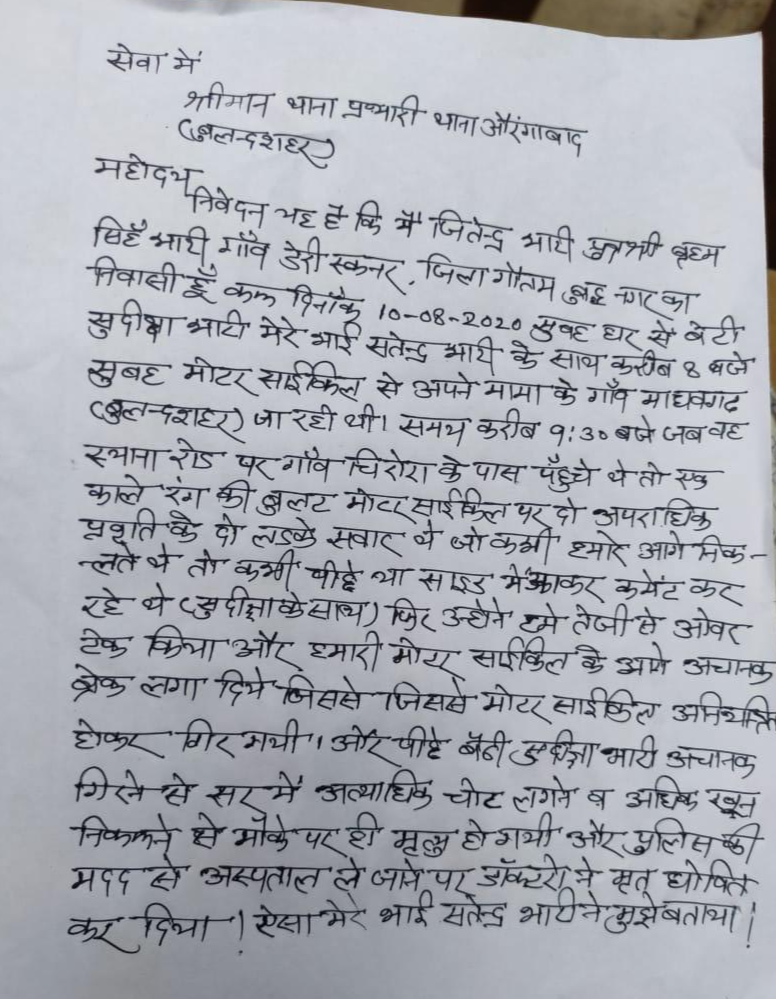 सेवा में
श्रीमान थाना प्रभारी थाना औरंगाबाद
(बुलन्दशहर)
महोदय
निवेदन यह है कि मैं जितेन्द्र भाटी पुत्र श्री बृहम
सिहँ भाटी, गाँव डेरी स्कनर, जिला गौतम बुद्ध नगर का
निवासी हूँ कल दिनाँक 10-08-2020 सुबह घर से बेटी
सुदीक्षा भाटी मेरे भाई सतेन्द्र भाटी के साथ करीब 8 बजे
सुबह मोटर साईकिल से अपने मामा के गाँव माधवगढ
(बुलन्दशहर) जा रही थी। समय करीब 9:30 बजे जब वह
स्याना रोड पर गाँव चिरोरा के पास पँहुचे थे तो एक
काले रंग की बुलट मोटर साईकिल पर दो अपराधिक
प्रवृति के दो लडके सवार थे जो कभी हमारे आगे निक-
-लते थे तो कभी पीछे या साइड में आकर कमेंट कर
रहे थे (सुदीक्षा के साथ) फिर उन्होने हमे तेजी से ओवर
टेक किया और हमारी मोटर साईकिल के आगे अचानक
ब्रेक लगा दिये जिससे जिससे मोटर साईकिल अनियंत्रित
होकर गिर गयी। और पीछे बैठी सुदीक्षा भाटी अचानक
गिरने से सर में अत्याधिक चोट लगने व अधिक खून
निकलने से मौके पर ही मृत्यु हो गयी और पुलिस की
मदद से अस्पताल ले जाने पर डॉक्टरो ने मृत घोषित
कर दिया। ऐसा मेरे भाई सतेन्द्र भाटी ने मुझे बताया।